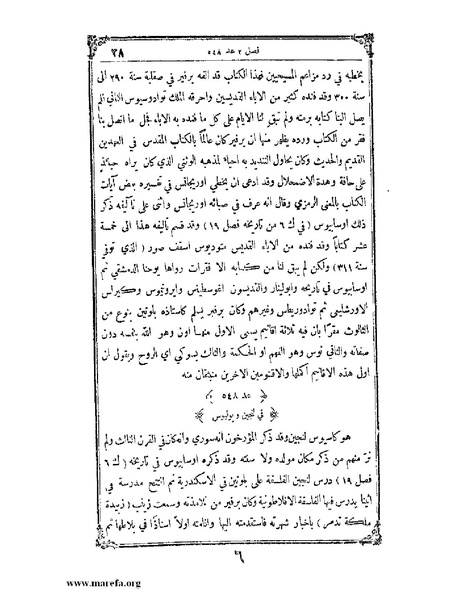 ٣٨ فصل ٢ عد ٥٤٨
بخطبه في رد مزاعم المسيحيين فهذا الكتاب قد الفه برفير في صقلية سنة ٢٩٠ الى
سنة ٣٠٠ وقد فنده كثير من الاباء القديسين واحرقه الملك توادوسيوس الثاني فلم
يصل الينا كتابه برمته ولم تبق لنا الايام على كل ما فنده به الاباء فجل ما اتصل بنا
فقر من الكتاب ورده يظهر منها ان برفير كان عالماً بالكتاب المقدس في العهدين
القديم والحديث وكان يحاول التنديد به احياء لمذهبه الوثني الذي كان يراه حينئذ
على حافة وهدة الاضمحلال وقد ادعى ان يخطي اوريجانس في تفسيره بعض آيات
الكتاب بالمعنى الرمزي وقال انه عرف في صبائه اوريجانس واثنى على تآليفه ذكر
ذلك اوسابيوس ( في ك ٦ من تاريخه فصل ١٩ ) وقد قسم تأليفه هذا الى خمسة
عشر كتاباً وقد فنده من الاباء القديس متوديوس اسقف صور ( الذي توفي
سنة ٣١١) ولكن لم يبق لنا من كتابه الا فقرات رواها يوحنا الدمشقي ثم
اوسابيوس في تاريخه وابولينار والقديسون اغوسطينس وايرونيموس وكيرلس
الاورشليمي ثم توادوريطس وغيرهم وكان برفير يسلم كاستاذه بلوتين بنوع من
الثالوث مقراً بان فيه ثلاثة اقانيم يسمى الاول منهما اون وهو الله بنفسه دون
صفاته والثاني نوس وهو الفهم او الحكمة والثالث بسوكي اي الروح ويقول ان
اولى هذه الاقانيم اكملها والاقنومين الاخرين منبثقان منه
عد ٥٤٨
في لنجين وبوليوس
هو كاسيوس لنجين وقد ذكر المؤرخون انه سوري وانه كان في القرن الثالث ولم
نرَ منهم من ذكر مكان مولده ولا سنته وقد ذكره اوسابيوس في تاريخه ( ك ٦
فصل ١٩ ) درس لنجين الفلسفة على بلوتين في الاسكندرية ثم افتتح مدرسة في
اثينا يدرس فيها الفلسفة الافلاطونية وكان برفير من تلامذته وسمعت زينب ( زبيدة
ملكة تدمر ) باخبار شهرته فاستقدمته اليها واقامته اولاً استاذاً في بلاطها ثم
٦
www.marefa.org